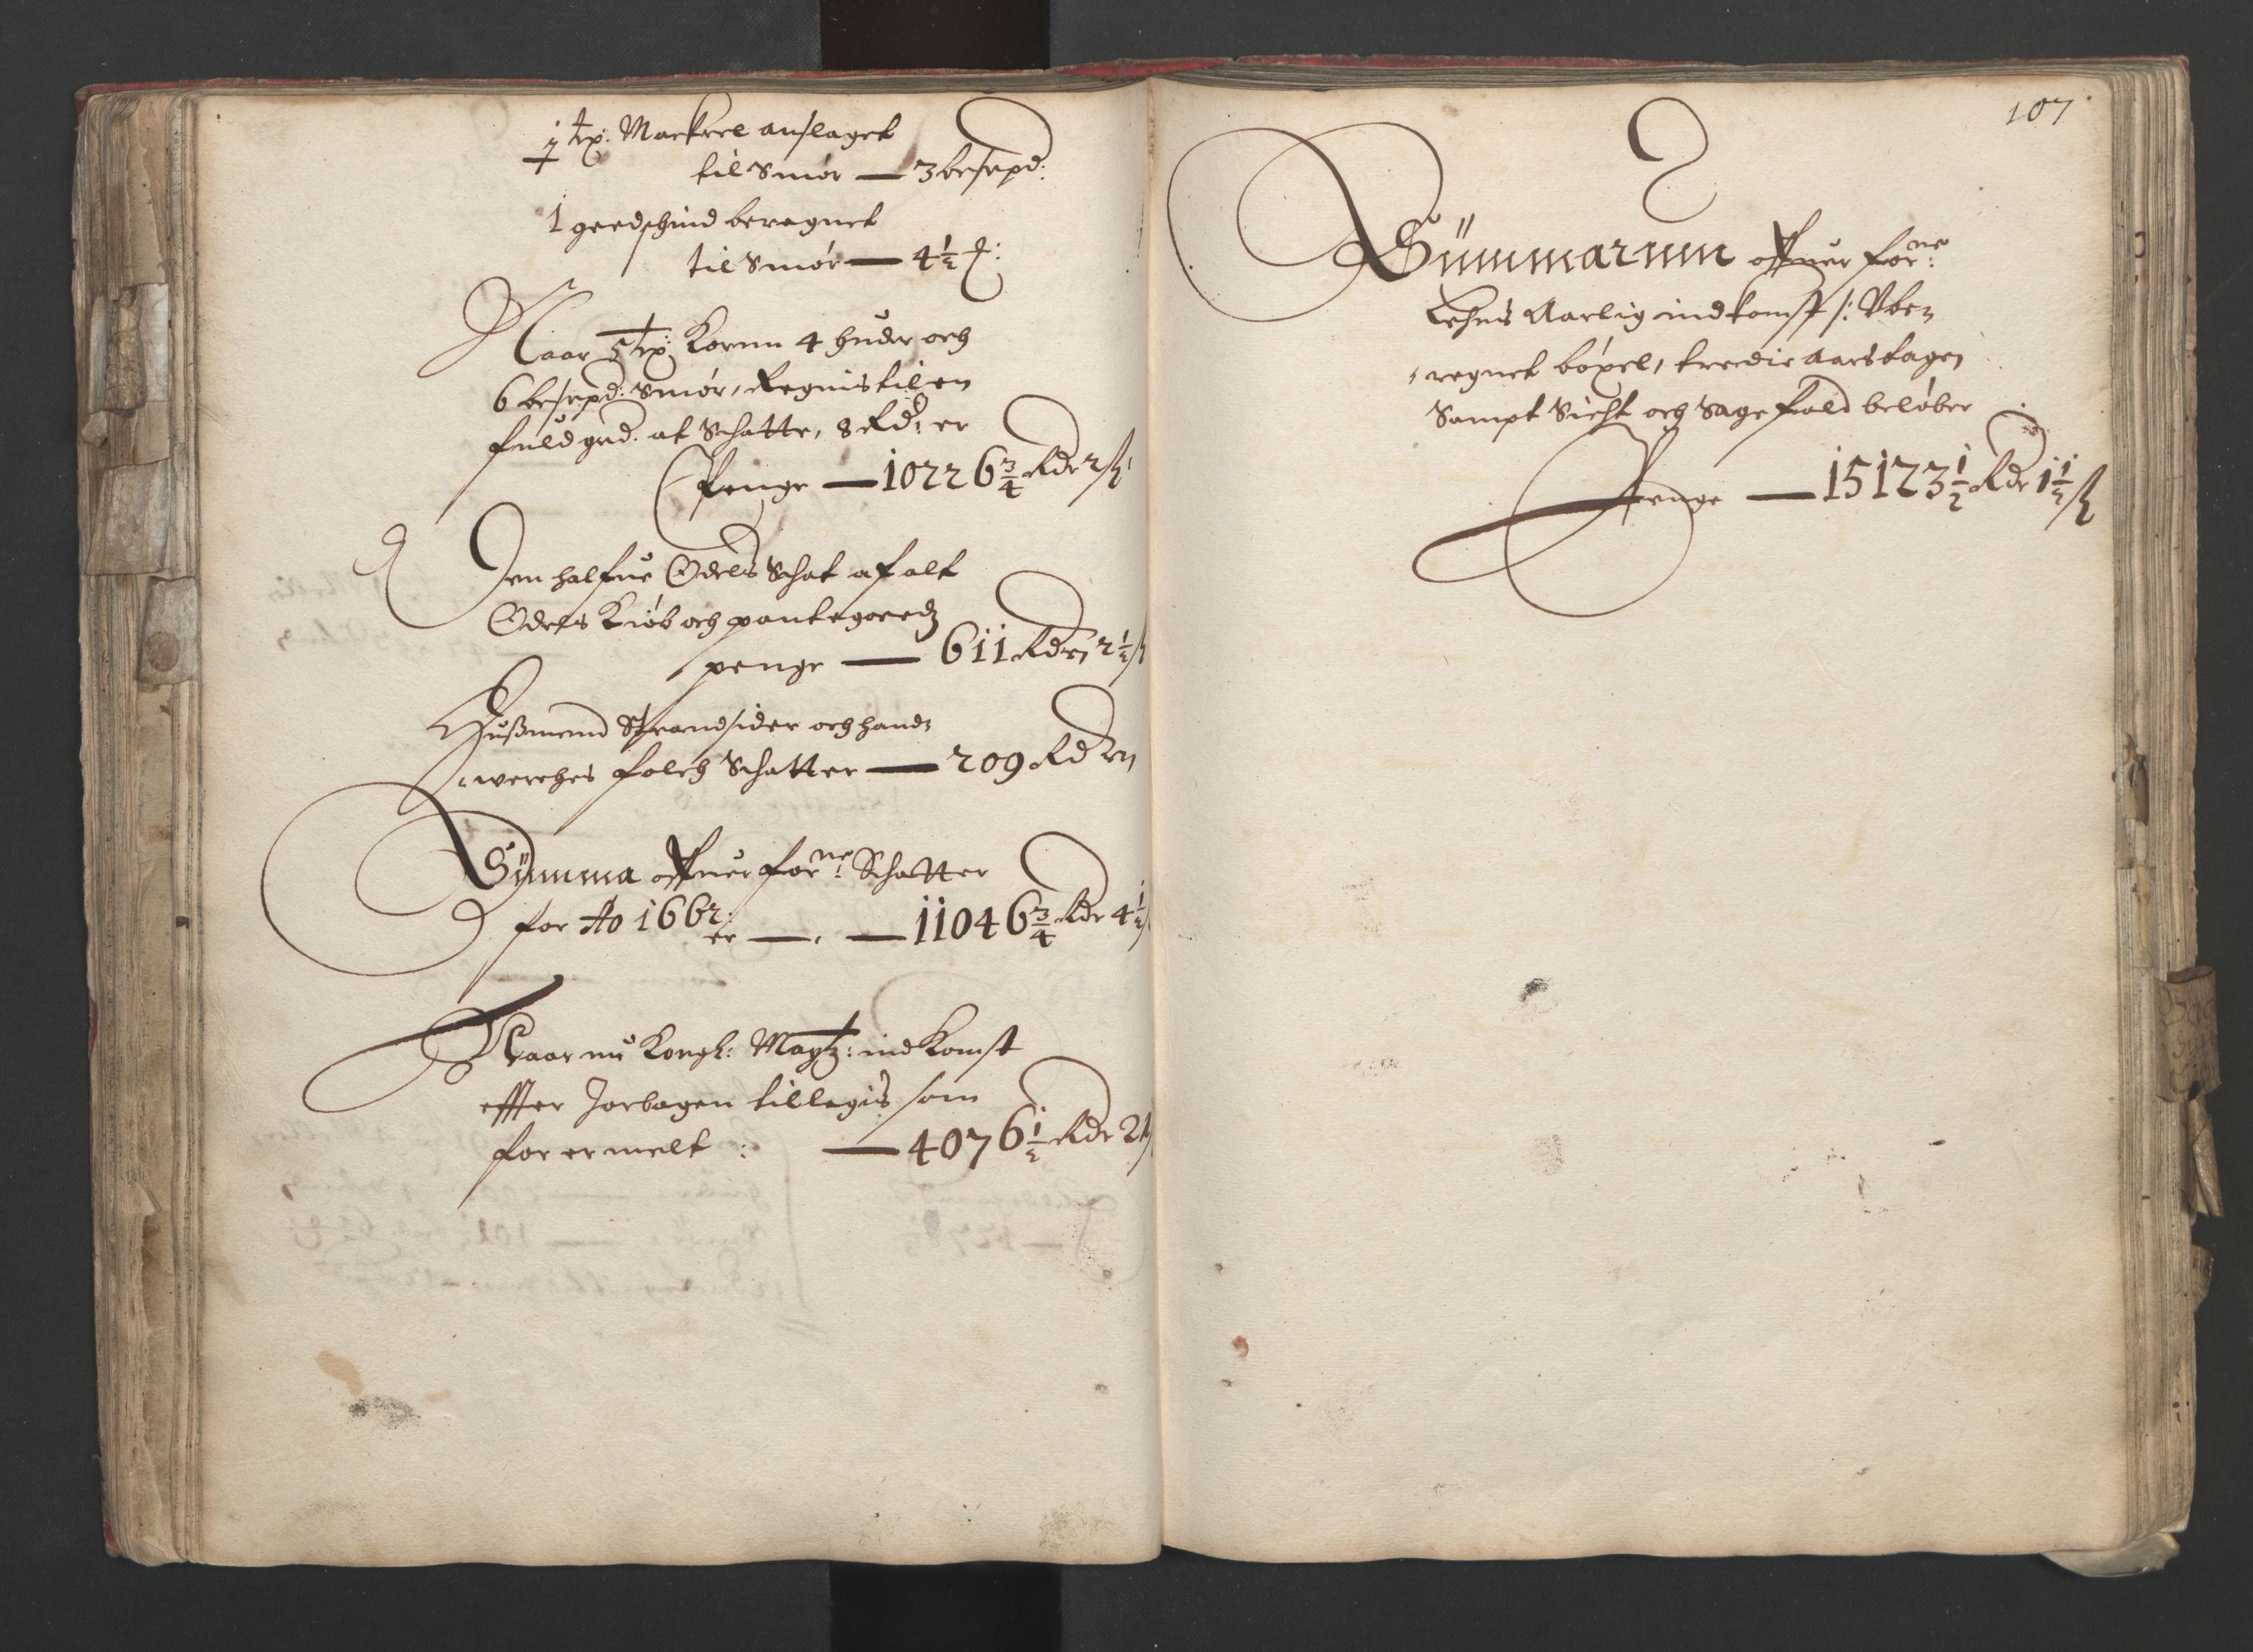 ½ tφ: Mackrel anslaget
til Smør — 3 besmpd:
1 geedschind beregnet
til Smør — 4½ ℔:
Naar 5 tφ: Kornn 4 huder och
6 besmpd: Smør, Regnis til en
fuld grd. at Schatte, 8 Rdr: er
Penge — 10226¾ Rdr 2 ß
Den halfue Odels Schat af alt
Odels Kiøb och pantegoeds
penge — 611 Rdr 2½ ß
Hußmend Strandsider och handt
werches folch Schatter — 209 Rdr
Summa offuer forne: Schatter
for Ao 1662:
er — 11046¾ Rdr 4½ ß
Naar nu Kongl: Maytz: indkomst
effter Jorbogen tillegis som
for er melt : — 4076½ Rdr 2 ß
107
Summarum offuer forne:
Lehns Aarlig indkomst /: Vbe
regnet bøxel, tredie aars tage
Sampt Sicht och Sagefald beløber
Penge — 15123½ Rdr 1½ ß